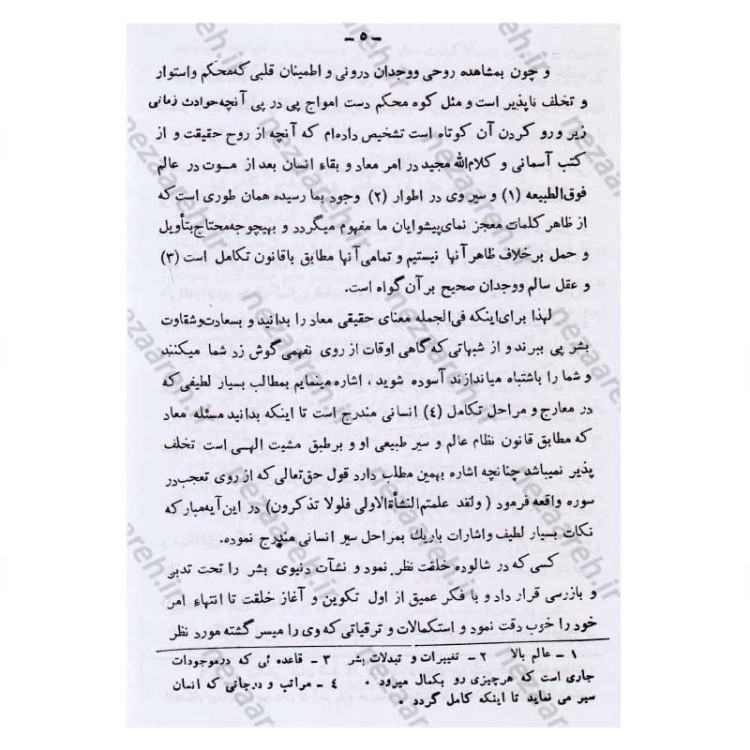 ـ ۵ ـ
و چون بمشاهده روحی ووجدان درونی و اطمینان قلبی که محکم واستوار
و تخلف ناپذیر است و مثل کوه محکم دست امواج پی در پی آنچه حوادث زمانی
زیر و رو کردن آن کوتاه است تشخیص داده‌ام که آنچه از روح حقیقت و از
کتب آسمانی و کلام‌الله مجید در امر معاد و بقاء انسان بعد از مـوت در عالم
فوق‌الطبیعه (۱) و سیر وی در اطوار (۲) وجود بما رسیده همان طوری است که
از ظاهر کلمات معجز نمای پیشوایان ما مفهوم میگردد و بهیچوجه محتاج بتأویل
و حمل بر خلاف ظاهر آنها نیستیم و تمامی آنها مطابق باقانون تکامل است (۳)
و عقل سالم ووجدان صحیح بر آن گواه است.
لهذا برای اینکه فی‌الجمله معنای حقیقی معاد را بدانید و بسعادت وشقاوت
بشر پی ببرند و از شبهاتی که گاهی اوقات از روی نفهمی گوش زد شما میکنند
و شما را باشتباه میاندازند آسوده شوید ، اشاره مینمایم بمطالب بسیار لطیفی که
در معارج و مراحل تکامل (۴) انسانی مندرج است تا اینکه بدانید مسئله معاد
که مطابق قانون نظام عالم و سیر طبیعی او و برطبق مشیت الهـی است تخلف
پذیر نمیباشد چنانچه اشاره بهمین مطلب دارد قول حق‌تعالی که از روی تعجب در
سوره واقعه فرمود ( ولقد علمتم‌النشأة‌الاولی فلولا تذکرون) در این آیه مبارکه
نکات بسیار لطیف واشارات باریك بمراحل سیر انسانی مندرج نموده.
کسی که در شالوده خلقت نظر نمود و نشآت دنیوی بشر را تحت تدبر
و بازرسی قرار داد و با فکر عمیق از اول تکوین و آغاز خلقت تا انتهاء امر
خود را خوب دقت نمود و استکمالات و ترقیاتی که وی را میسر گشته مورد نظر
۱ ـ عالم بالا ۲ ـ تغییرات و تبدلات بشر ۳ ـ قاعده ئی که درموجودات
جاری است که هرچیزی رو بکمال میرود . ۴ ـ مراتب و درجاتی که انسان
سیر می نماید تا اینکه کامل گردد .
nezaareh.ir